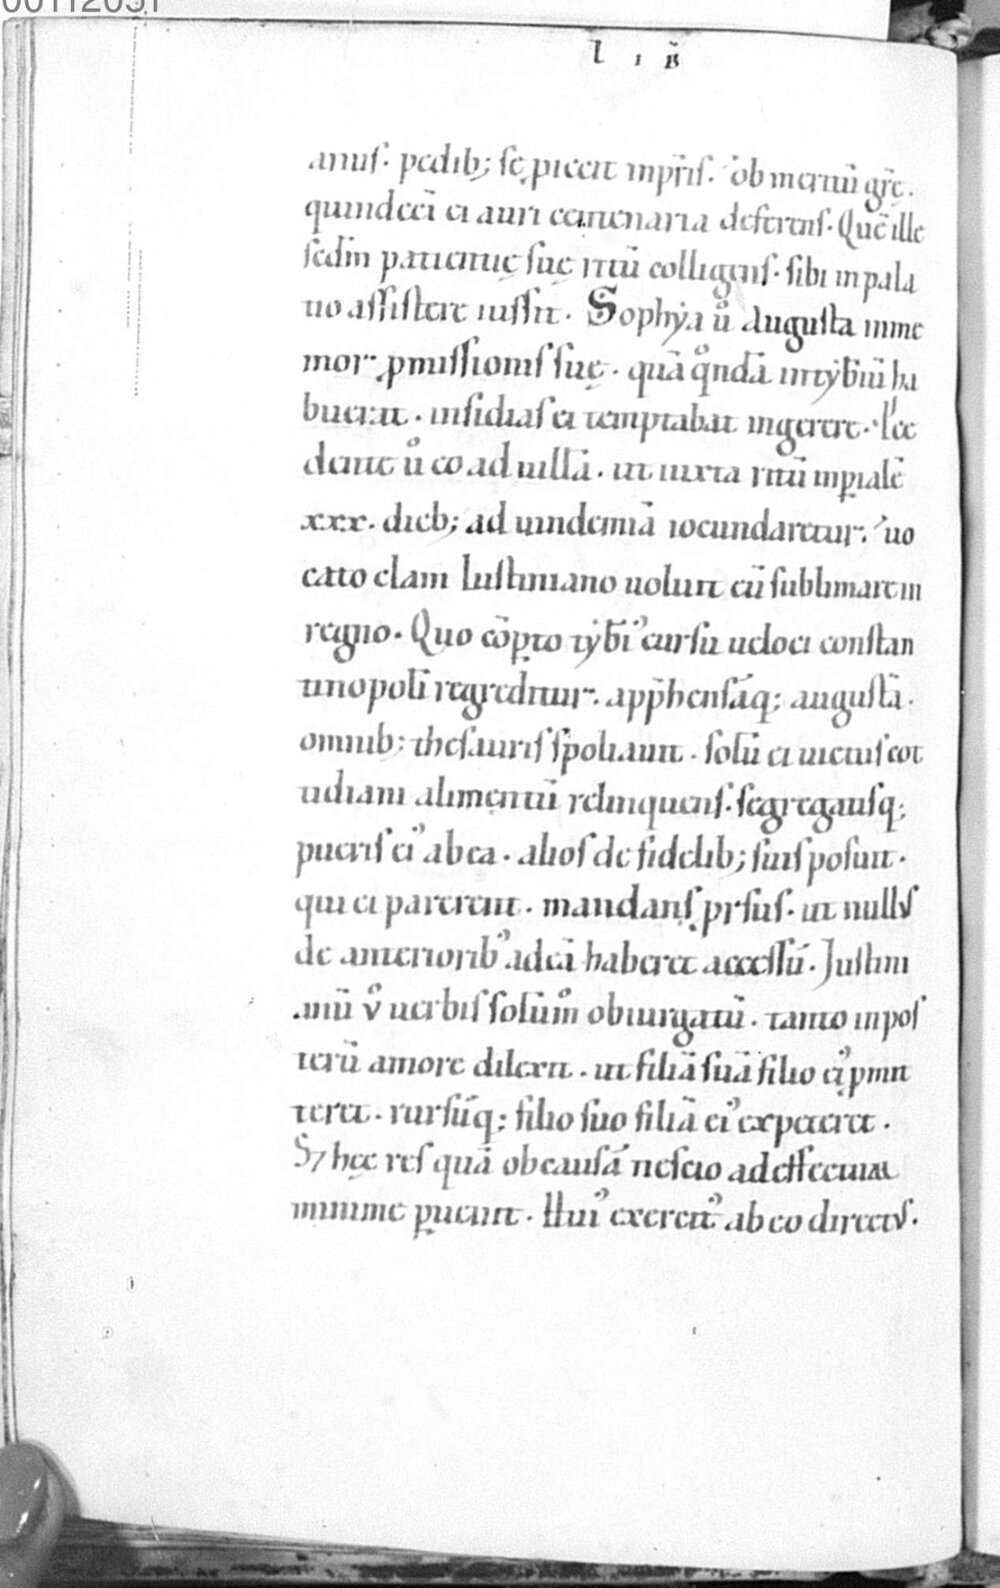 00112031
L I B̃
anus. pedib; se ꝓiecit inpr̃is. ob meritũ gr̃ę.
quindecĩ ei auri centenaria deferens. Quẽ ille
scdm̃ patientię suę ritũ colligens. sibi in pala
tio assistere iussit. Sophẏa ũ augusta inme
mor ꝓmissionis suę. quã qͦndã in tẏb̃iũ ha
buerat. insidias ei temptabat ingerere. Ꝓce
dente uͦ eo ad uillã. ut iuxta ritũ inꝑialẽ
xxx. dieb; ad uindemiã iocundaretur. uo
cato clam Iustiniano uoluit eũ sublimare in
regno. Quo cõꝑto tẏb̃i᾿ cursu ueloci constan
tinopolĩ regreditur. app̃hensãq; augustã.
omnib; thesauris spoliauit. solũ ei uictus cot
tidiani alimentũ relinquens. segregatisq;
pueris ei᾿ ab ea. alios de fidelib; suis posuit.
qui ei parerent. mandans ꝓrsus. ut nullus
de anteriorib᾿ ad eã haberet accessũ. Justini
anũ vͦ uerbis solũmͦ obiurgatũ. tanto in pos
terũ amore dilexit. ut filiã suã filio ei᾿ ꝓmit
teret. rursũq; filio suo filiã ei᾿ expeteret.
S; hęc res quã ob causã nescio ad effectum
minime ꝑuenit. Hui᾿ exercit᾿ ab eo directus.